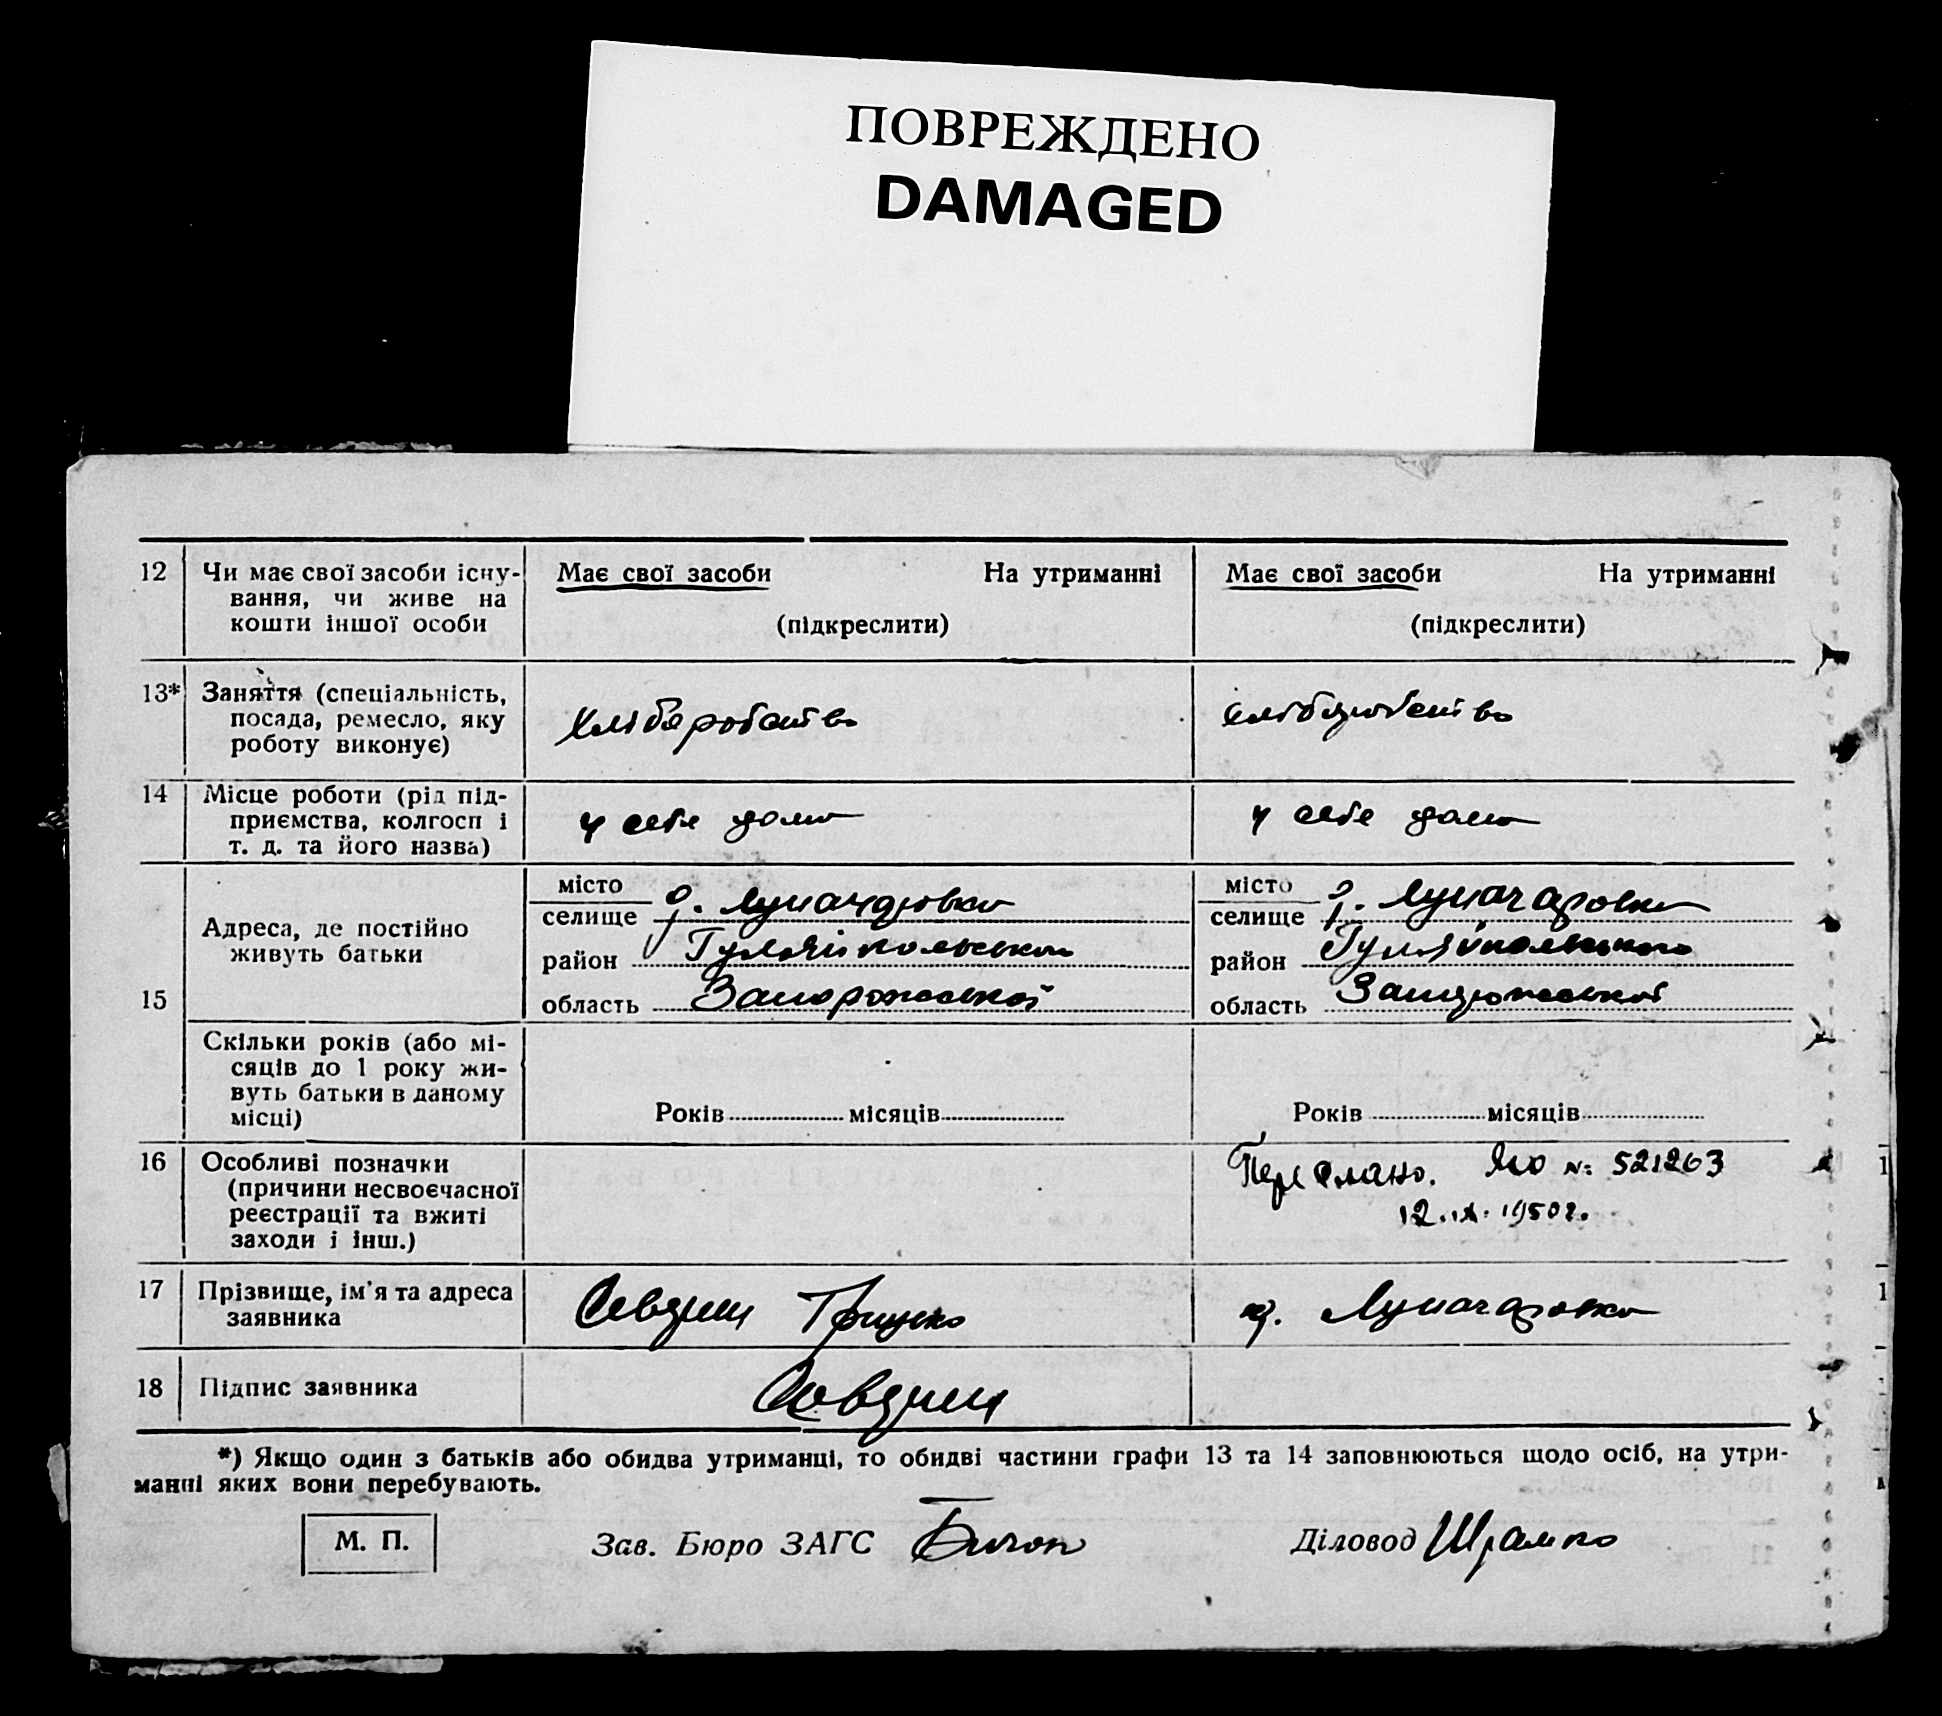 ПОВРЕЖДЕНО
DAMAGED
12 Чи має свої засоби існу-
вання, чи живе на
кошти іншої особи
Має свої засоби На утриманні
(підкреслити)
Має свої засоби На утриманні
(підкреслити)
13* Заняття (спеціальність,
посада, ремесло, яку
роботу виконує)
хлібаробство
хлібаробство
14 Місце роботи (рід під-
приємства, колгосп і
т. д. та його назва)
у себе дома
у себе дома
15
Адреса, де постійно
живуть батьки
місто
селище Луначаровка
район Гуляйпольського
область Запорожської
місто
селище Луначаровка
район Гуляйпольського
область Запорожської
Скільки років (або мі-
сяців до 1 року жи-
вуть батьки в даному
місці)
Років місяців
Років місяців
16 Особливі позначки
(причини несвоєчасної
реєстрації та вжиті
заходи і інш.)
№ 521263
12.IX.1950г.
17 Прізвище, ім'я та адреса
заявника
Грицько
Луначаровка
18 Підпис заявника
*) Якщо один з батьків або обидва утриманці, то обидві частини графи 13 та 14 заповнюються щодо осіб, на утри-
манні яких вони перебувають.
М. П. Зав. Бюро ЗАГС Діловод